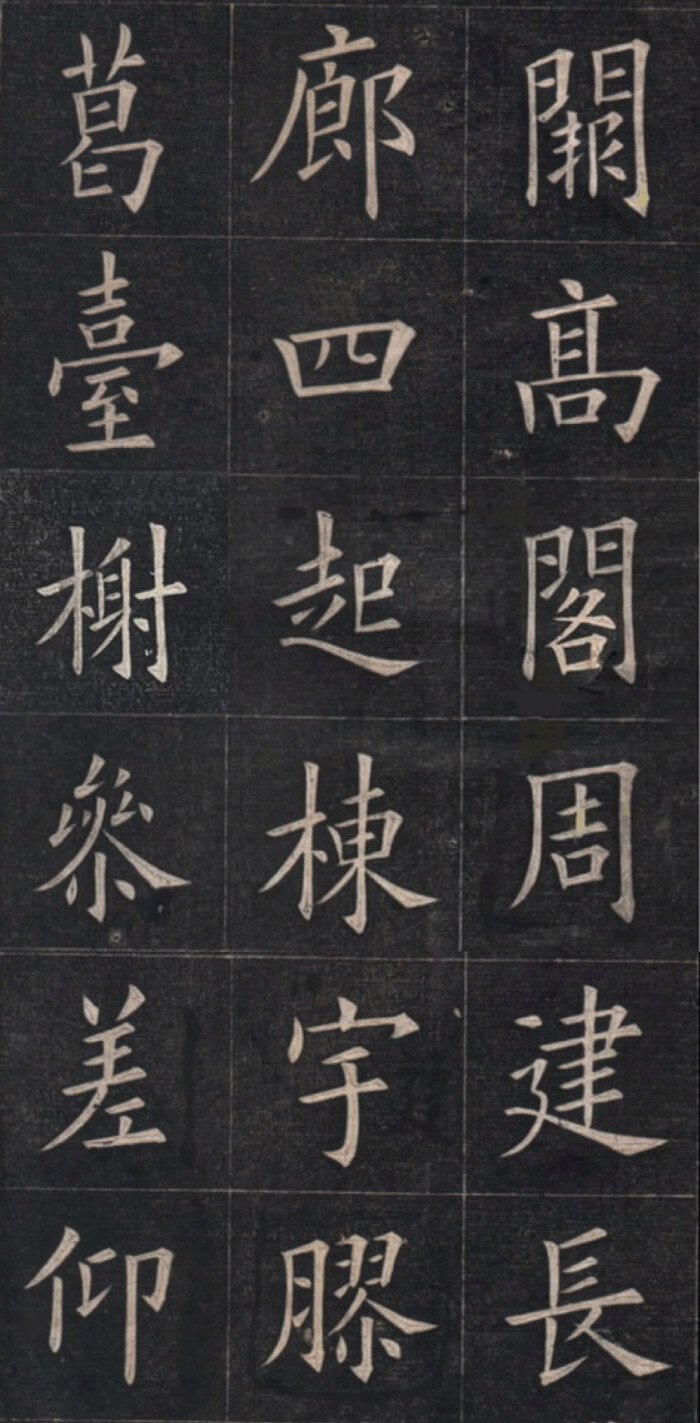 闕高閣周建長
廊四起棟宇膠
葛臺榭叅差仰